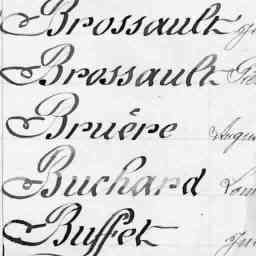 Brossault
Brossault
Bruère
Buchard
Buffet